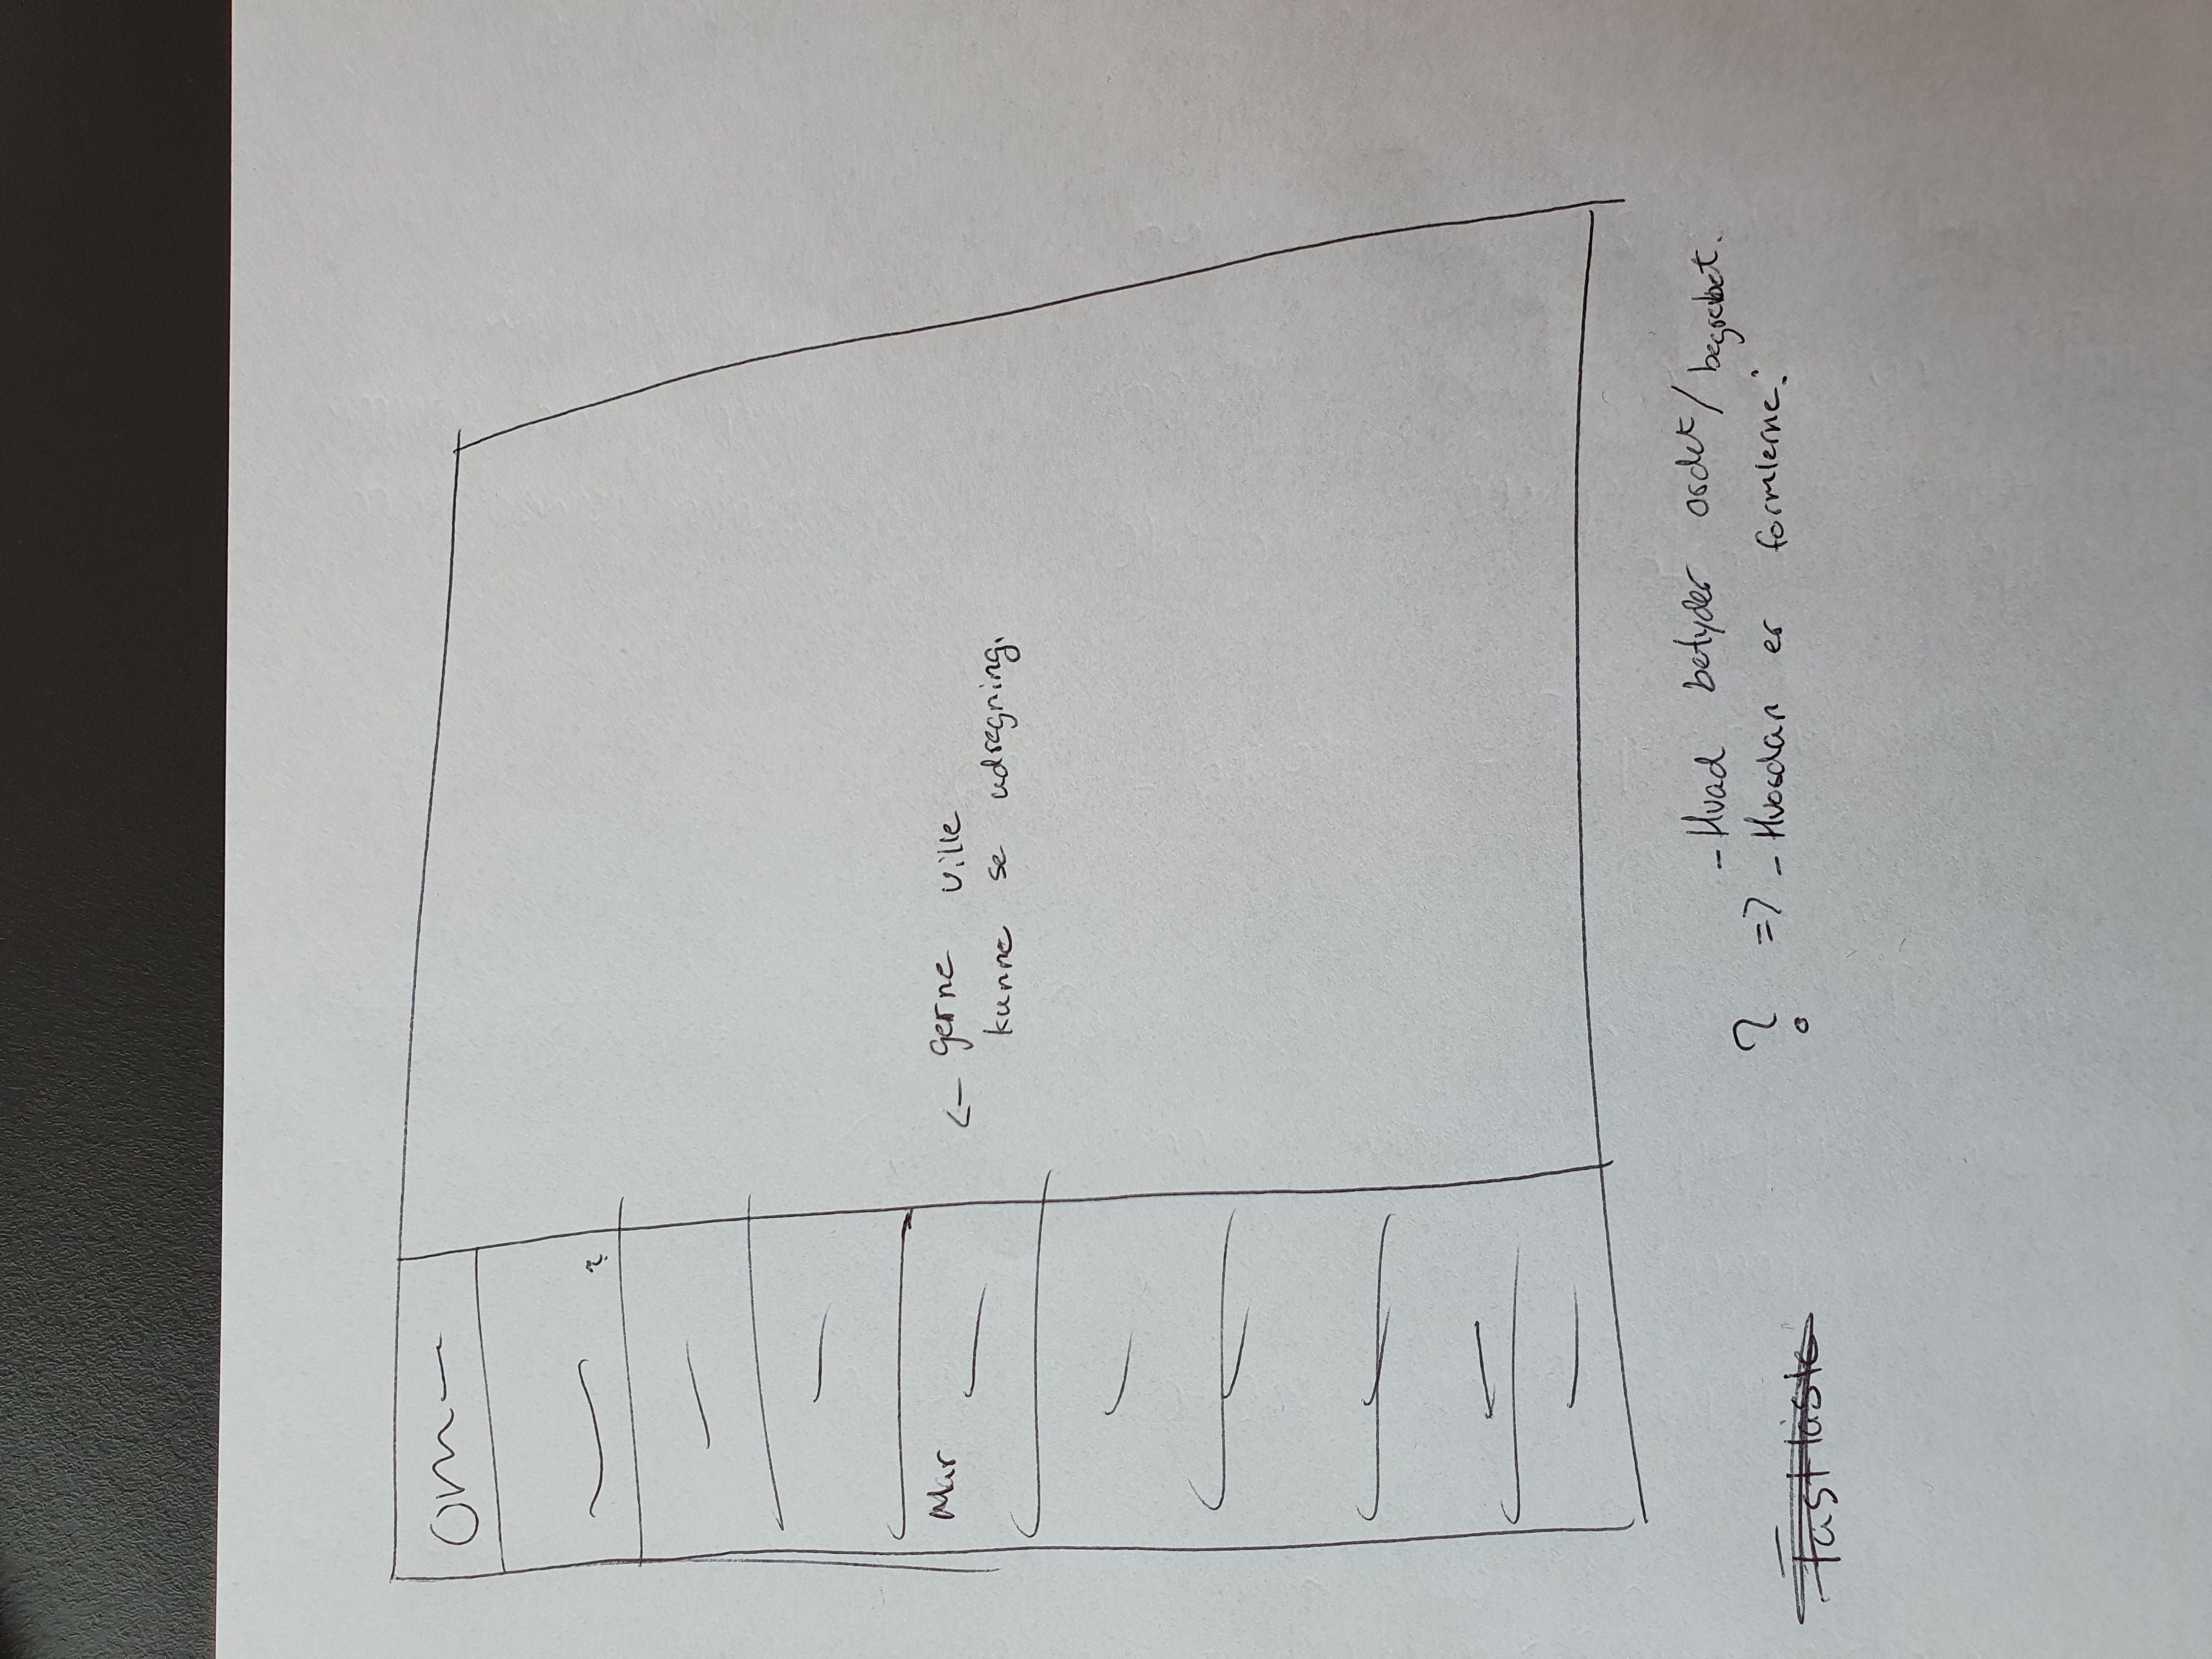 Om
?
Mar
← gerne ville
kunne se udregning.
- Hvad betyder ordet/begrebet.
? => - Hvordan er formlerne?